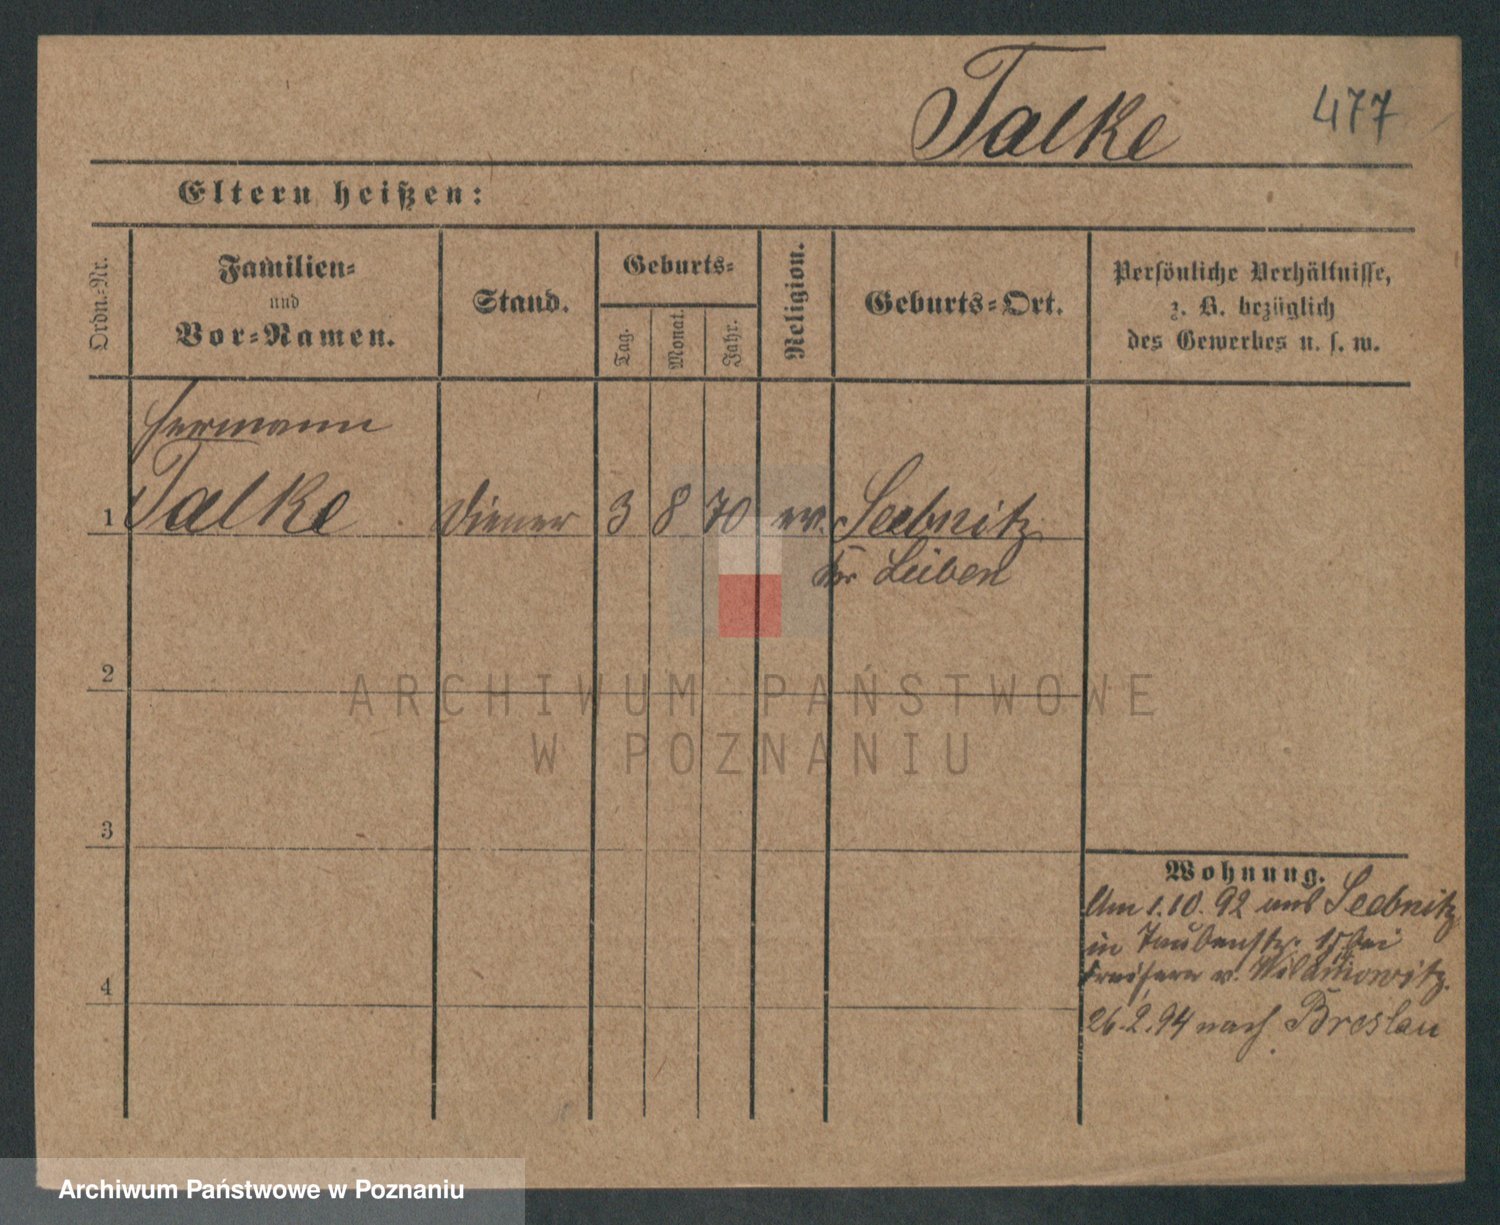 Talke
477
Eltern heißen:
Ordn.-Nr.
Familien-
und
Vor-Namen.
Stand.
Geburts-
Tag.
Monat.
Jahr.
Religion.
Geburts-Ort.
Persönliche Verhältnisse,
z. B. bezüglich
des Gewerbes u. s. w.
Hermann
1 Talke Diener 3 8 70 ev. Seebnitz
Kr Lüben
2
ARCHIWUM PAŃSTWOWE
W POZNANIU
3
Wohnung.
Am 1.10.92 aus Seebnitz
in Taubenstr. bei
v. Wilamowitz.
4
26.2.94 nach Breslau
Archiwum Państwowe w Poznaniu